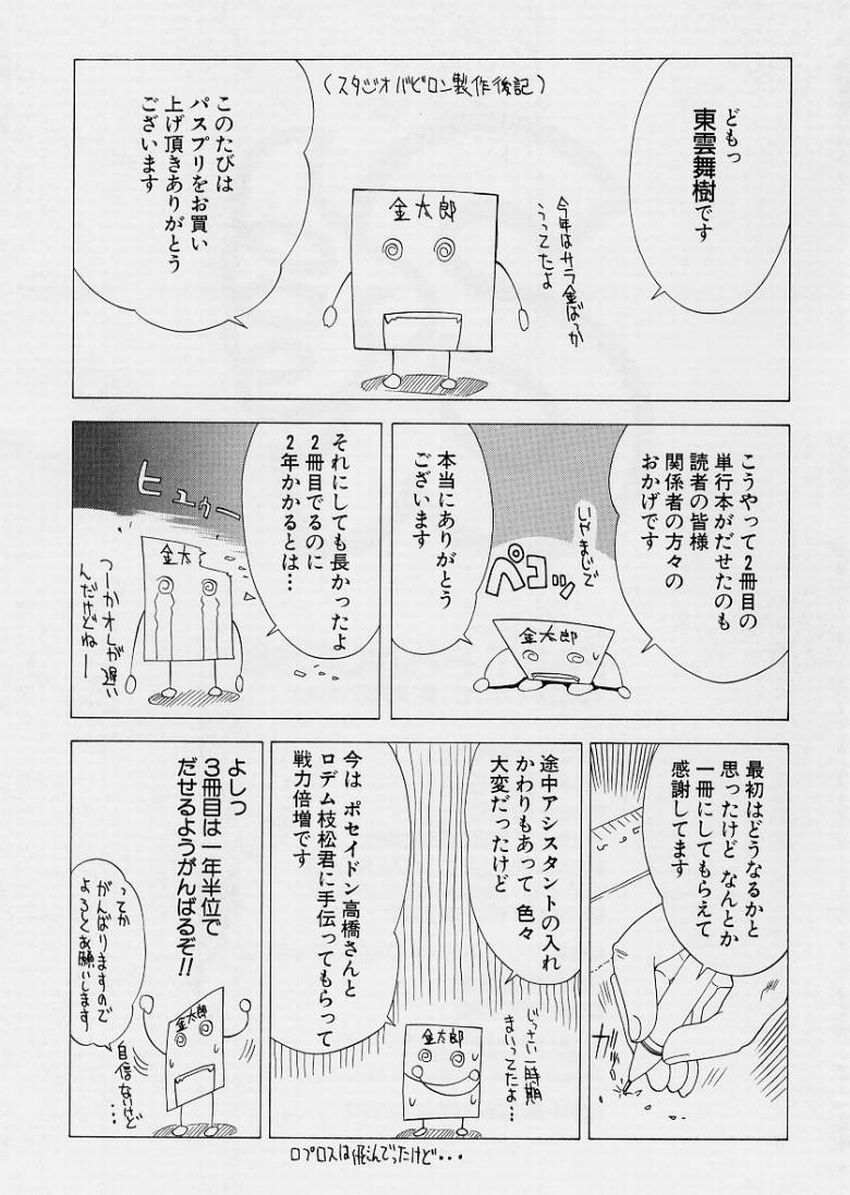 (スタジオバビロン製作後記)
どもっ
東雲舞樹です
今年はサラ金ばっか
うってたよ
金太郎
このたびは
パスプリをお買い
上げ頂きありがとう
ございます
こうやって2冊目の
単行本がだせたのも
読者の皆様
関係者の方々の
おかげです
いやまじで
ペコッ
金太郎
本当にありがとう
ございます
それにしても長かったよ
2冊目でるのに
2年かかるとは…
ヒュゥー
金太
つーかオレが遅い
んだけどねー
最初はどうなるかと
思ったけど なんとか
一冊にしてもらえて
感謝してます
ガリ
途中アシスタントの入れ
かわりもあって 色々
大変だったけど
じっさい一時期
まいってたよ…
金太郎
今は ポセイドン高橋さんと
ロデム枝松君に手伝ってもらって
戦力倍増です
よしっ
3冊目は一年半位で
だせるようがんばるぞ!!
金太郎
ってか
がんばりますので
よろしくお願いします
自信ないけど
…
ロプロスは飛んでったけど・・・